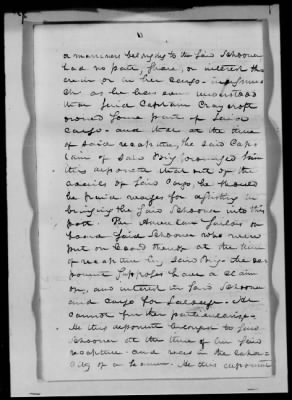 a mariners belonging to the said Schooner
had no part, share, or interest this
or in her cargo - inasmuch
as he has ever understood
that said Captain Craycroft
owned some part of said
cargo - and that at the time
of said recapture, the said Cap
tain of said Brig promised him
this deponent that out of the
of said Cargo, he should
be paid wages for assisting in
bringing the said Schooner into this
port. The American Sailors on
board said Schooner who were
put on board thereof at the time
of recapture by said Brig the de
ponent supposes have a claim
on, and interest in said Schooner
and cargo for Salvage. He
cannot further
He this deponent belonged to said
Schooner at the time of her said
recapture and was in the capa
city of a Seaman. He this deponent